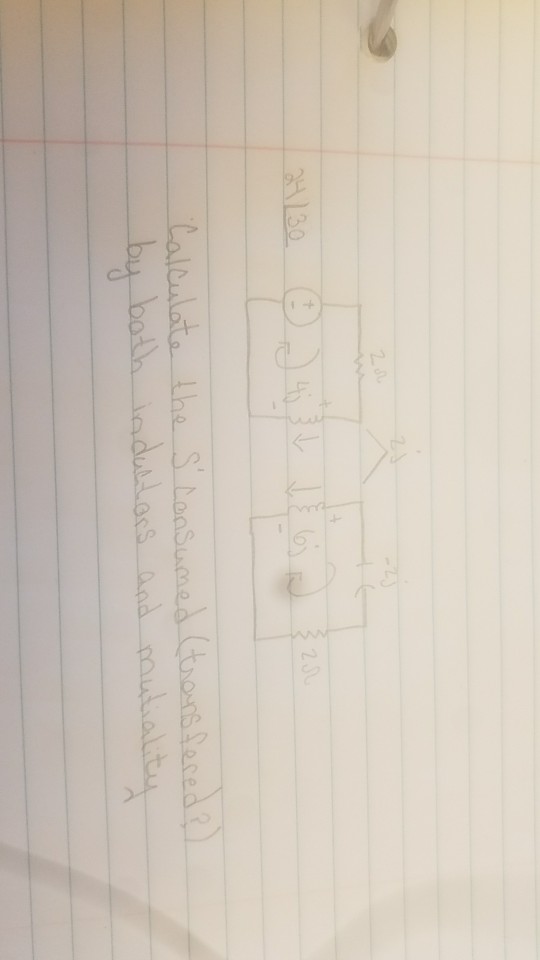 2Ω
2j
-2j
24∠30
+
-
4j
+
-
+
-
6j
2Ω
Calculate the S' Consumed (transfered?)
by both inductors and mutiality